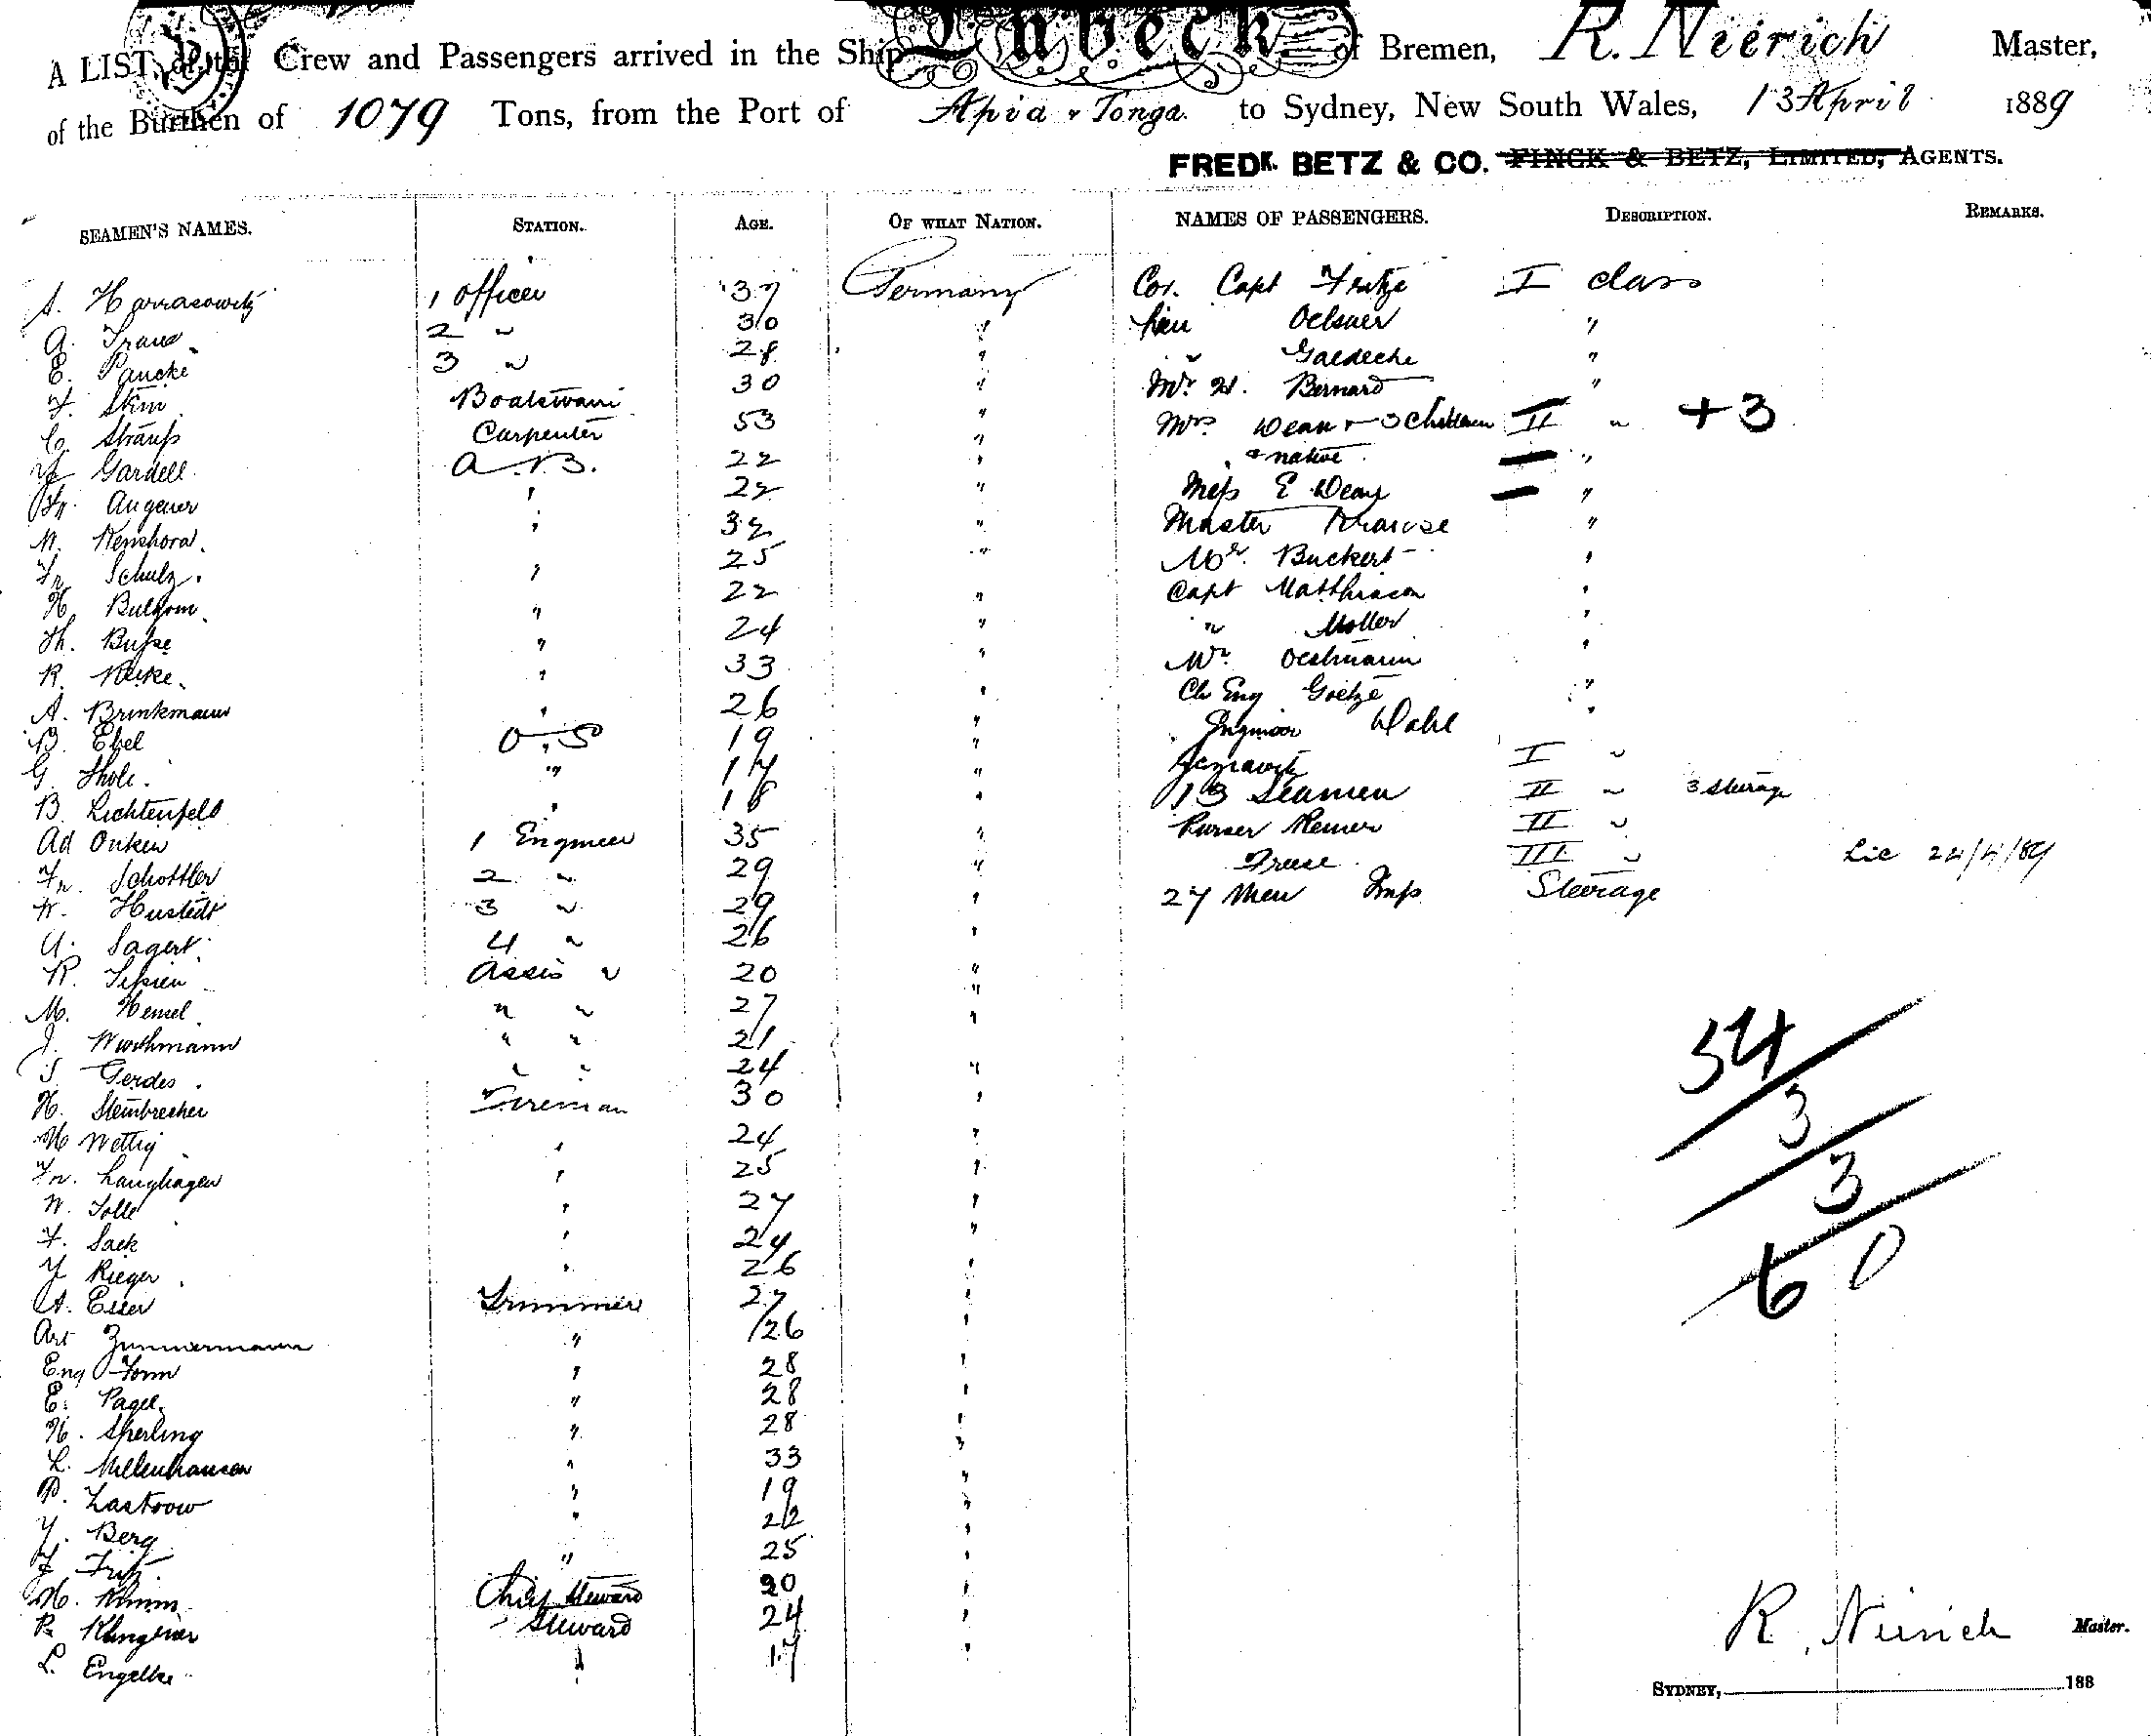 A LIST of the Crew and Passengers arrived in the Ship Lübeck of Bremen, R. Nierich Master,
of the Burthen of 1079 Tons, from the Port of Apia & Tonga. to Sydney, New South Wales, 13 April 1889
FREDK. BETZ & CO. FINCK & BETZ, LIMITED, AGENTS.
SEAMEN'S NAMES. STATION. AGE. OF WHAT NATION. NAMES OF PASSENGERS. DESCRIPTION. REMARKS.
1 officer 37 Germany Cor. Capt Fritze I class
A. 2 " 30 " Lieu Oelsner "
E. Pancke 3 " 28 " " Gaedeche "
F. Boatswain 30 " Mr. H. Bernard "
C. Strauss Carpenter 53 " Mrs Dean & 3 Children II " + 3
Gardell A.B. 22 " & native "
Fr. Angener " 22 " Miss E Dean "
" 32 " Master Krause "
Fr. Schulz. " 25 " Mr. Buckert "
H. " 22 " Capt Matthiason "
Th. Busse " 24 " " Moller "
R. " 33 " Mr. Oestmann "
A. Brinkmann " 26 " Ch Eng Goetze "
B. Ebel O.S 19 " Dahl "
G. Thole. " 17 " I "
B. Lichtenfeld " 18 " 13 Seamen II " 3 Steerage
Ad Onken 1 Engineer 35 " Purser Remer II "
Fr. Schottler 2 " 29 " Freese III " Lic 24/4/89
W. Hustedt 3 " 29 " 27 Men Imp Steerage
A. Sagert. 4 " 26 "
R. Assis " 20 "
M. Hensel " " 27 "
J. " " 21 "
J Gerdes. " " 24 "
H. Steinbrecher Fireman 30 "
H Wettig " 24 "
Fr. Langhagen " 25 "
W. Tolle " 27 "
F. Sack " 24 "
J Rieger " 26 "
A. Esser Trimmer 27 "
Art Zimmermann " 26 "
Eug Form " 28 "
E. Pagel " 28 "
H. Sperling " 28 "
L. " 33 "
P. Zastrow " 19 "
J. Berg " 22 "
F Fritz. " 25 "
H. Chief Steward 20 "
R. Klingener Steward 24 "
L. Engelke " 17 "
54
3
3
60
R. Nierich Master.
SYDNEY, 188